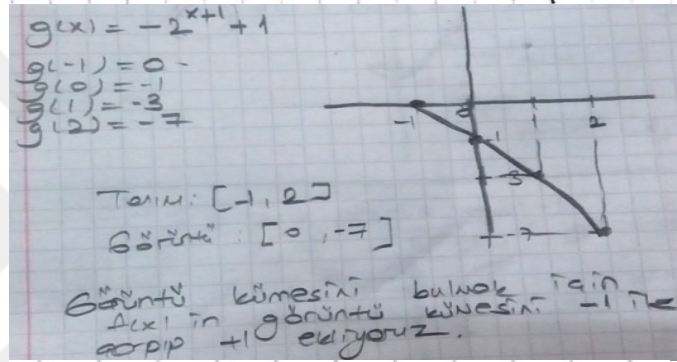 g(x) = -2^{x+1} + 1
g(-1) = 0
g(0) = -1
g(1) = -3
g(2) = -7
0
-1 1 2
-1
-3
-7
Tanım: [-1, 2]
Görüntü: [0, -7]
Görüntü kümesini bulmak için
f(x) in görüntü kümesini -1 ile
çarpıp +1 ekliyoruz.